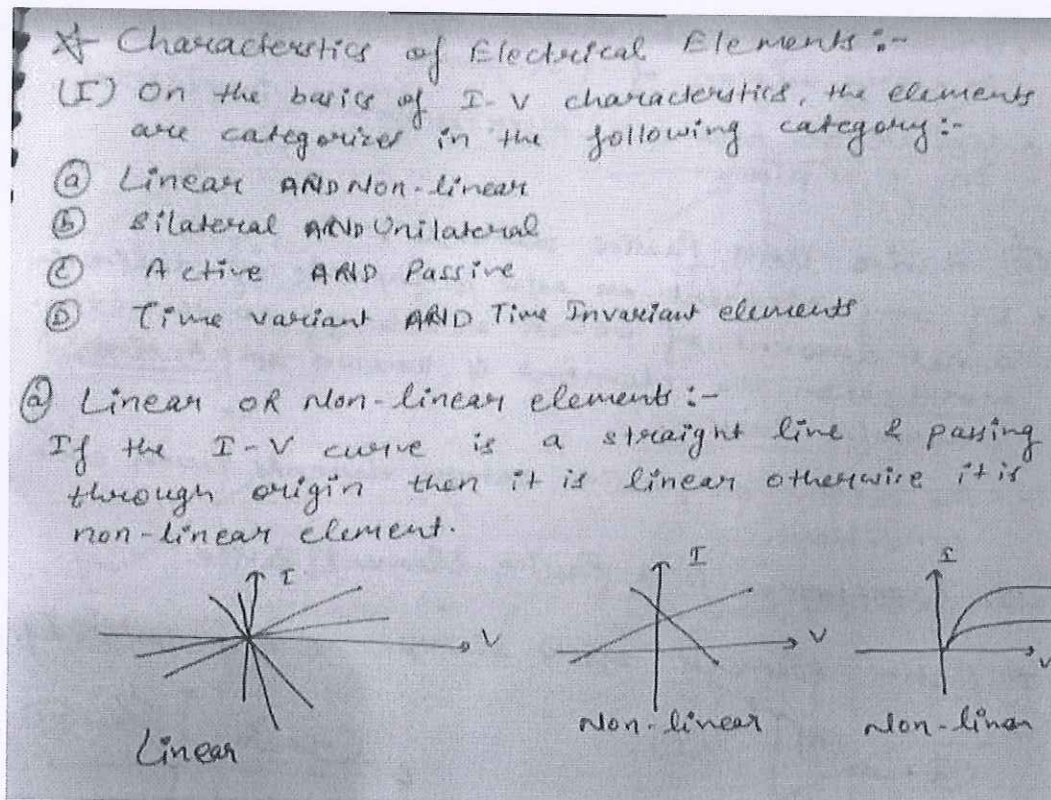 ☆ Characterstics of Electrical Elements:-
(I) On the basics of I-V characterstics, the elements
are categorizes in the following category:-
(a) Linear AND Non-linear
(b) Bilateral AND Unilateral
(c) Active AND Passive
(D) Time variant AND Time Invariant elements
(a) Linear OR Non-linear elements:-
If the I-V curve is a straight line & passing
through origin then it is linear otherwise it is
non-linear element.
I
V
Linear
I
V
Non-linear
I
V
Non-linear